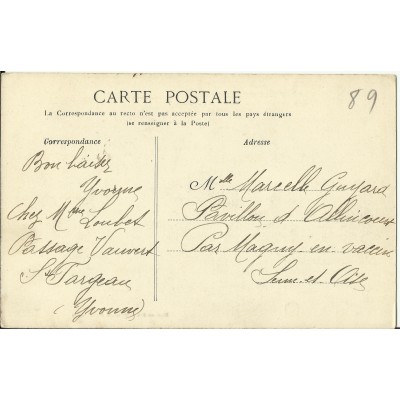 89
CARTE POSTALE
La Correspondance au recto n'est pas acceptée par tous les pays étrangers
(se renseigner à la Poste)
Correspondance
Adresse
Bon baiser
Yvonne
Chez Mme Loubet
Passage Vauvert
St Fargeau
(Yvonne)
Mlle Marcelle Guyard
Pavillon d
Par Magny en vaccin
Seine et Oise